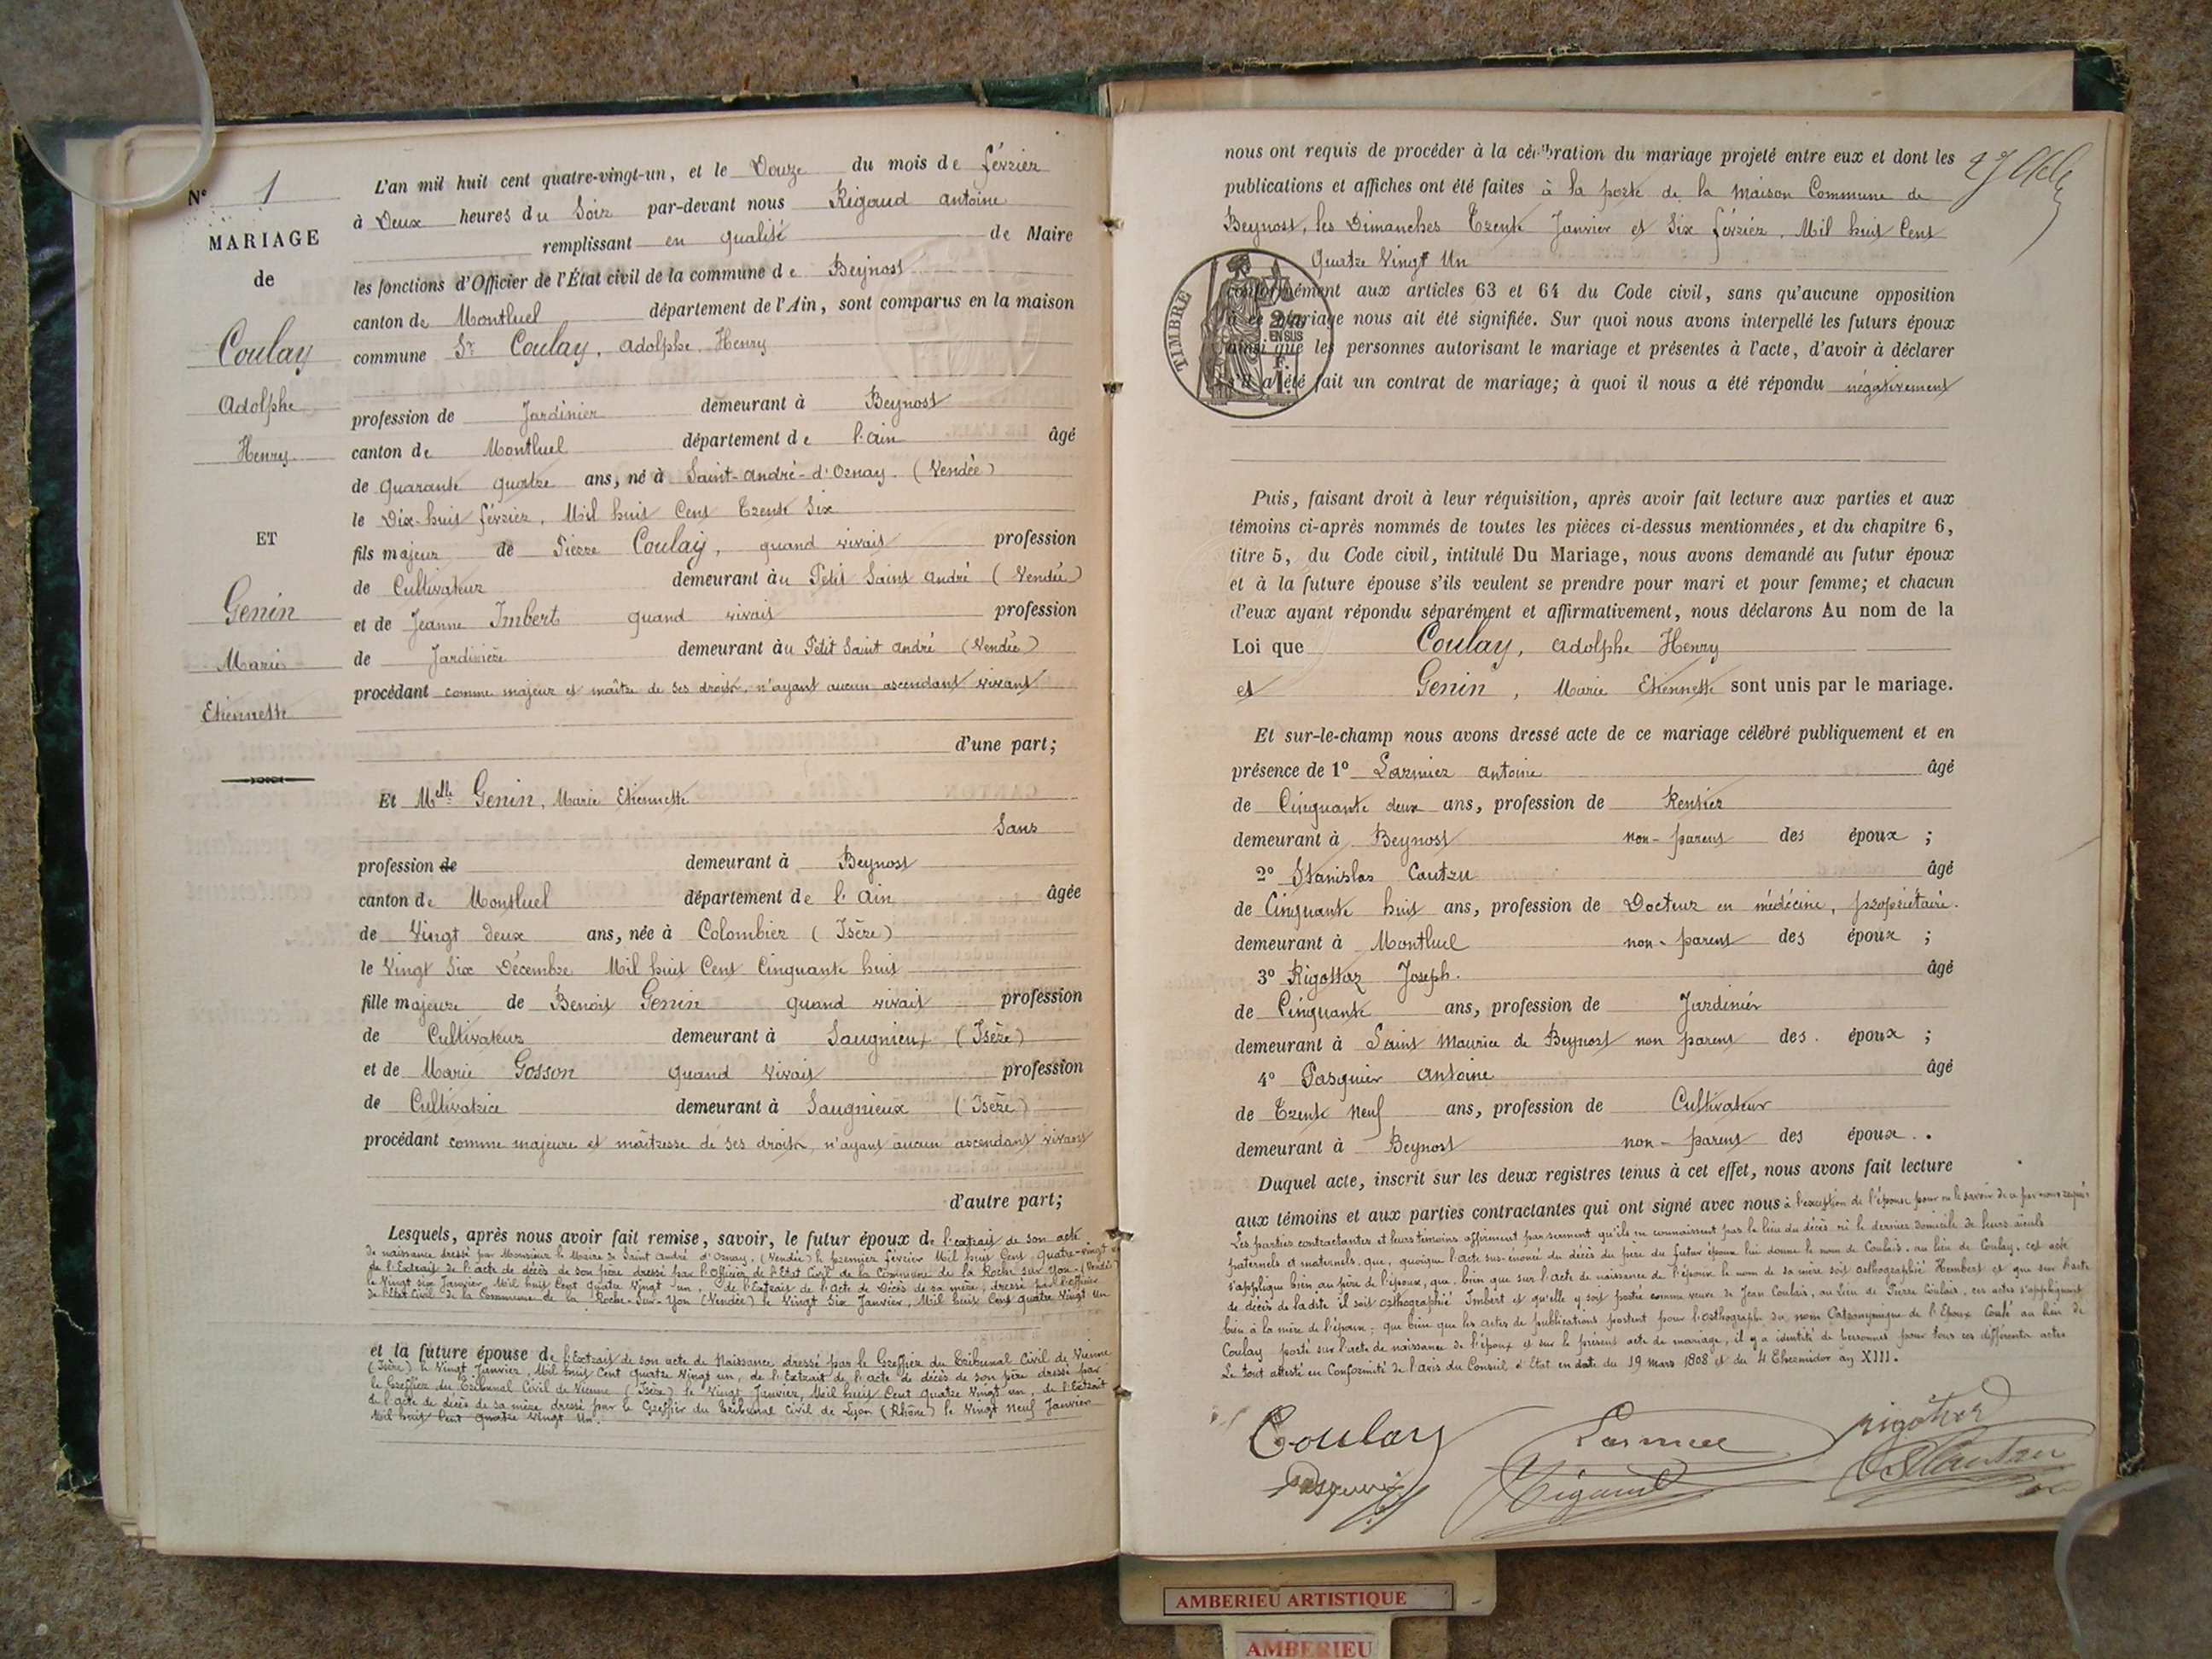 N° 1
MARIAGE
de
Coulay
Adolphe
Henry
ET
Genin
Marie
Etiennette
L'an mil huit cent quatre-vingt-un, et le Douze du mois de février
à Deux heures du Soir par-devant nous Rigaud antoine
remplissant en qualité de Maire
les fonctions d'Officier de l'État civil de la commune de Beynost
canton de Montluel département de l'Ain, sont comparus en la maison
commune Sr Coulay, Adolphe, Henry
profession de Jardinier demeurant à Beynost
canton de Montluel département de l'ain âgé
de quarante quatre ans, né à Saint-André-d'Ornay (Vendée)
le Dix-huit février, Mil huit Cent Trente Six
fils majeur de Pierre Coulay, quand vivait profession
de Cultivateur demeurant au Petit Saint André (Vendée)
et de Jeanne Imbert quand vivait profession
de Jardinière demeurant au Petit Saint André (Vendée)
procédant comme majeur et maître de ses droits, n'ayant aucun ascendant vivant
d'une part;
Et Melle Genin, Marie Etiennette
Sans
profession de demeurant à Beynost
canton de Montluel département de l'Ain âgée
de Vingt deux ans, née à Colombier (Isère)
le Vingt Six Décembre Mil huit Cent Cinquante huit
fille majeure de Benoit Genin quand vivait profession
de Cultivateur demeurant à Saugnieux (Isère)
et de Marie Gosson quand vivait profession
de Cultivatrice demeurant à Saugnieux (Isère)
procédant comme majeure et maîtresse de ses droits, n'ayant aucun ascendant vivant
d'autre part;
Lesquels, après nous avoir fait remise, savoir, le futur époux de l'extrait de son acte
de naissance dressé par Monsieur le Maire de Saint André d'Ornay, (Vendée) le premier février Mil huit Cent quatre-vingt
de l'Extrait de l'acte de décès de son père dressé par l'Officier de l'Etat Civil de la Commune de la Roche sur Yon (Vendée)
le Vingt Six Janvier, Mil huit Cent quatre Vingt un, de l'Extrait de l'acte de Décès de sa mère, dressé par l'officier
de l'Etat Civil de la Commune de la Roche-Sur-Yon (Vendée) le Vingt Six Janvier, Mil huit Cent quatre Vingt un
et la future épouse de l'Extrait de son acte de Naissance dressé par le Greffier du Tribunal Civil de Vienne
(Isère) le Vingt Janvier, Mil huit Cent quatre Vingt un, de l'Extrait de l'acte de décès de son père dressé par
le Greffier du Tribunal Civil de Vienne (Isère) le Vingt Janvier, Mil huit Cent quatre Vingt un, de l'Extrait
de l'acte de décès de sa mère dressé par le Greffier du Tribunal Civil de Lyon (Rhône) le Vingt Neuf Janvier
Mil huit Cent quatre Vingt Un.
nous ont requis de procéder à la célébration du mariage projeté entre eux et dont les
publications et affiches ont été faites à la porte de la Maison Commune de
Beynost, les Dimanches Trente Janvier et Six février, Mil huit Cent
Quatre Vingt Un
conformément aux articles 63 et 64 du Code civil, sans qu'aucune opposition
à ce mariage nous ait été signifiée. Sur quoi nous avons interpellé les futurs époux
ainsi que les personnes autorisant le mariage et présentes à l'acte, d'avoir à déclarer
s'il a été fait un contrat de mariage; à quoi il nous a été répondu négativement
TIMBRE
EN SUS
Puis, faisant droit à leur réquisition, après avoir fait lecture aux parties et aux
témoins ci-après nommés de toutes les pièces ci-dessus mentionnées, et du chapitre 6,
titre 5, du Code civil, intitulé Du Mariage, nous avons demandé au futur époux
et à la future épouse s'ils veulent se prendre pour mari et pour femme; et chacun
d'eux ayant répondu séparément et affirmativement, nous déclarons Au nom de la
Loi que Coulay, Adolphe Henry
et Genin, Marie Etiennette sont unis par le mariage.
Et sur-le-champ nous avons dressé acte de ce mariage célébré publiquement et en
présence de 1° Larmier Antoine âgé
de Cinquante deux ans, profession de Rentier
demeurant à Beynost non-parent des époux ;
2° Stanislas Cautru âgé
de Cinquante huit ans, profession de Docteur en médécine, propriétaire.
demeurant à Montluel non-parent des époux ;
3° Rigottaz Joseph. âgé
de Cinquante ans, profession de Jardinier
demeurant à Saint Maurice de Beynost non parent des époux ;
4° Pasquier Antoine âgé
de Trente Neuf ans, profession de Cultivateur
demeurant à Beynost non-parent des époux.
Duquel acte, inscrit sur les deux registres tenus à cet effet, nous avons fait lecture
aux témoins et aux parties contractantes qui ont signé avec nous à l'exception de l'épouse pour ne le savoir de ce par nous requis
Les parties contractantes et leurs témoins affirment par serment qu'ils ne connaissent pas le lieu du décès ni le dernier domicile de leurs aïeuls
paternels et maternels, que, quoique l'acte sus-énoncé du décès du père du futur époux lui donne le nom de Coulais, au lieu de Coulay, cet acte
s'applique bien au père de l'époux, que, bien que sur l'acte de naissance de l'époux le nom de sa mère soit orthographié Hembert et que sur l'acte
de décès de ladite il soit orthographié Imbert et qu'elle y soit portée comme veuve de Jean Coulais, au lieu de Pierre Coulais, ces actes s'appliquent
bien à la mère de l'époux; que bien que les actes de publications portent pour l'orthographe du nom Patronymique de l'Epoux Coulé au lieu de
Coulay porté sur l'acte de naissance de l'époux et sur le présent acte de mariage, il y a identité de personnes pour tous ces différents actes
Le tout attesté en Conformité de l'avis du Conseil d'Etat en date du 19 Mars 1808 et du 4 Thermidor an XIII.
Coulay Larmier Rigottaz
Pasquier Rigaud S Cautru
AMBERIEU ARTISTIQUE
AMBERIEU